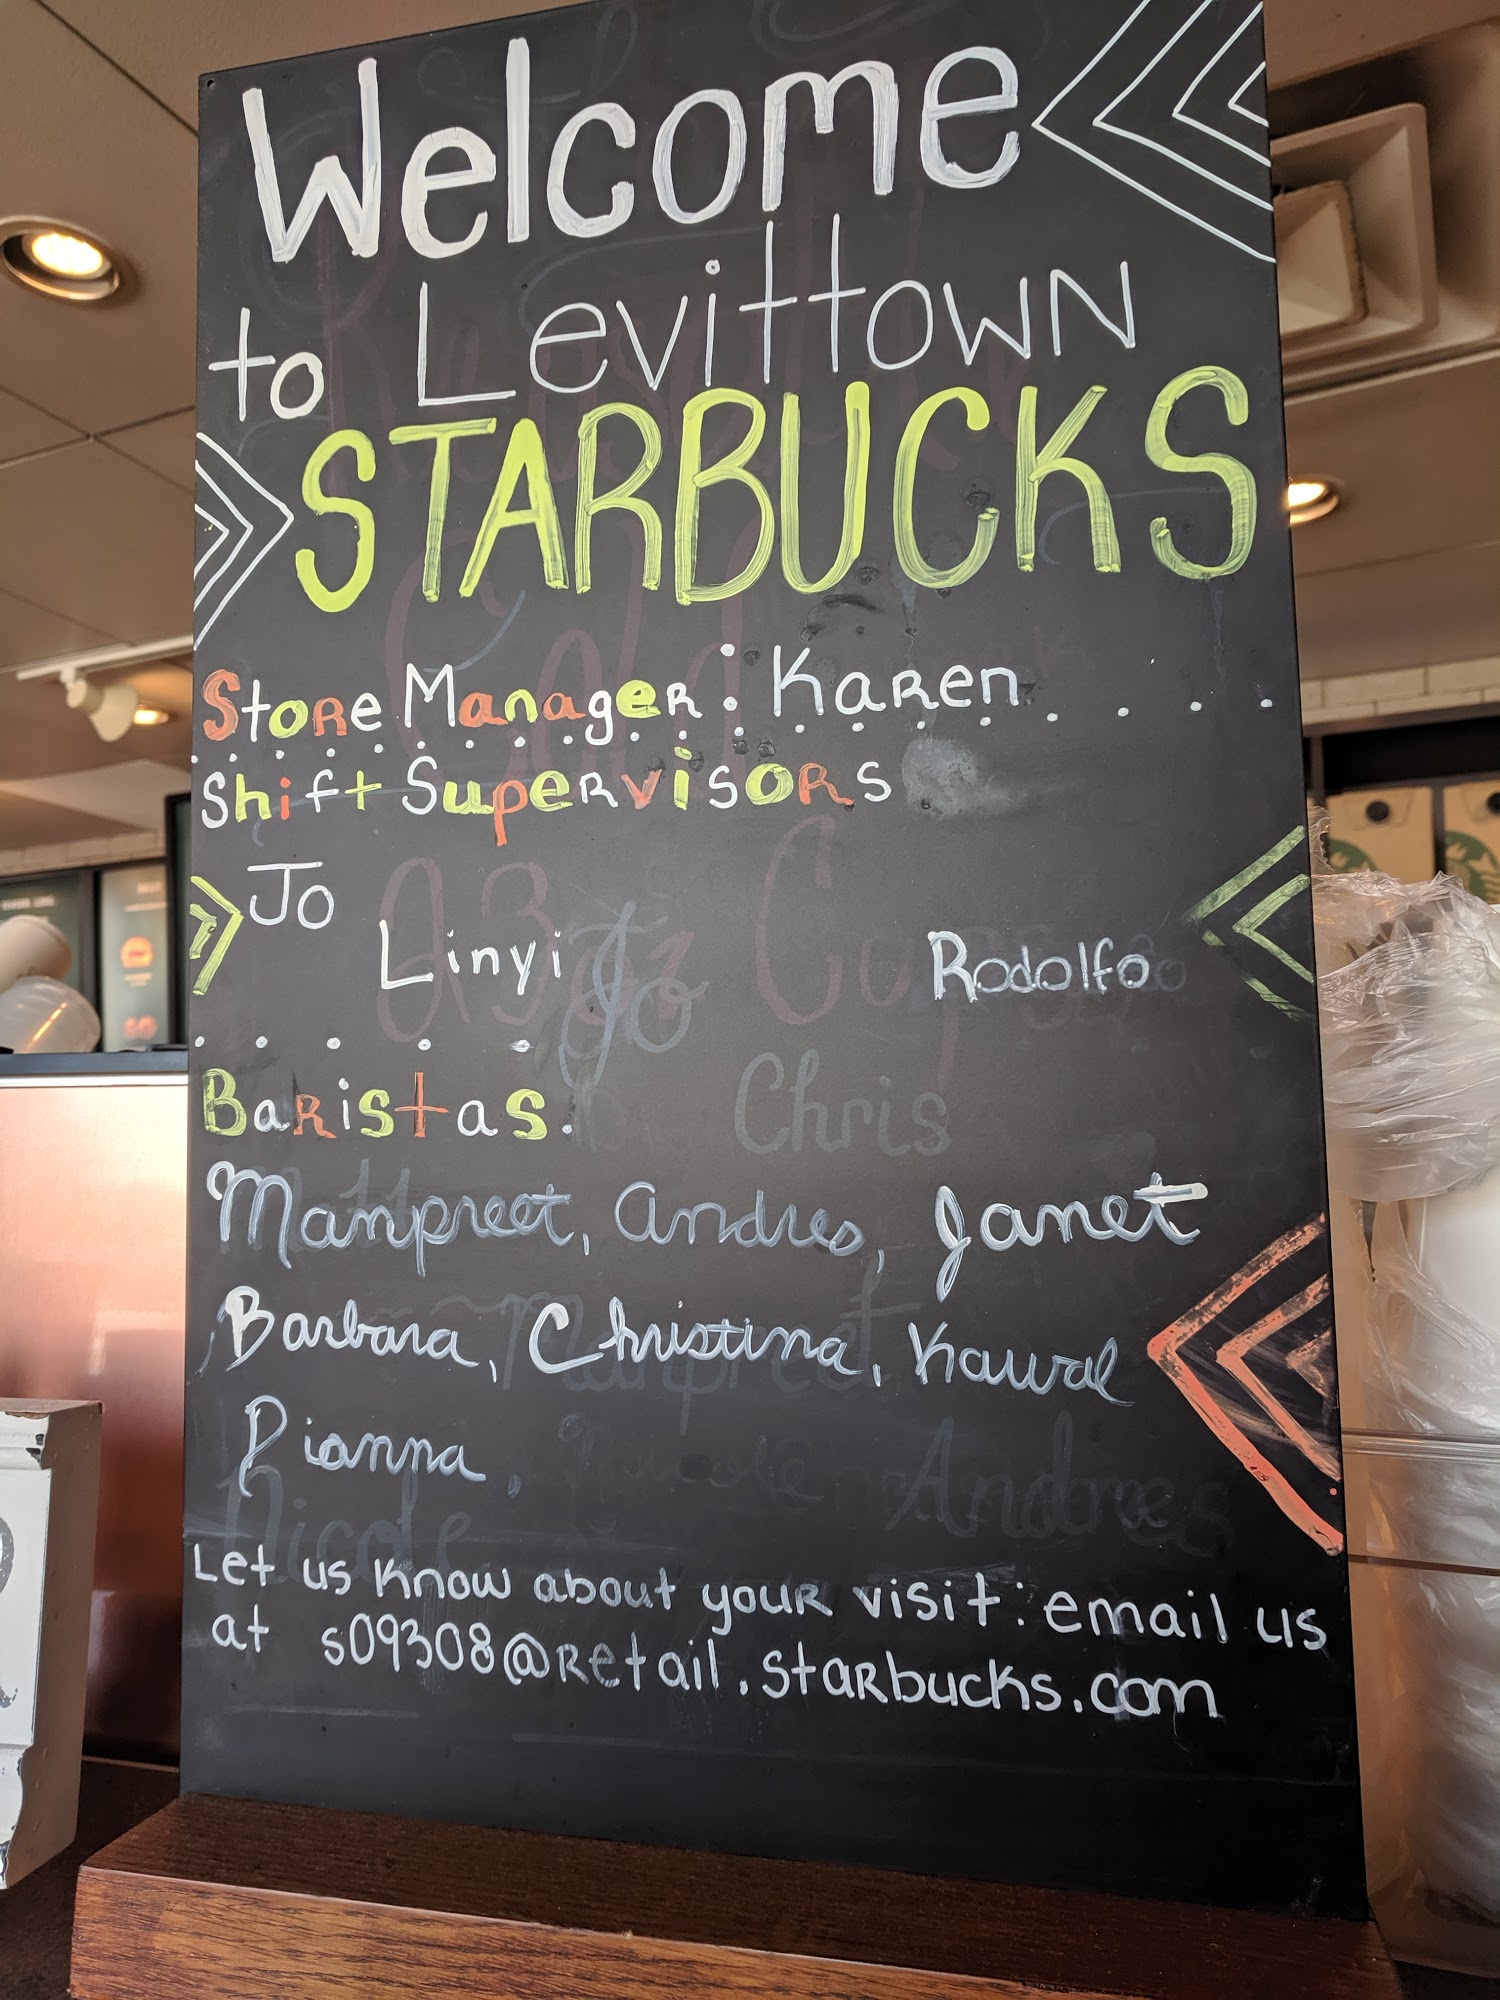 Welcome
to Levittown
STARBUCKS
Store Manager: Karen
Shift Supervisors
Jo
Linyi Rodolfo
Jo
Chris
Baristas.
Manpreet, Andres, Janet
Barbara, Christina, Kawal
Dianna,
Andrees
Nicole
Let us know about your visit: email us
at s09308@retail.starbucks.com